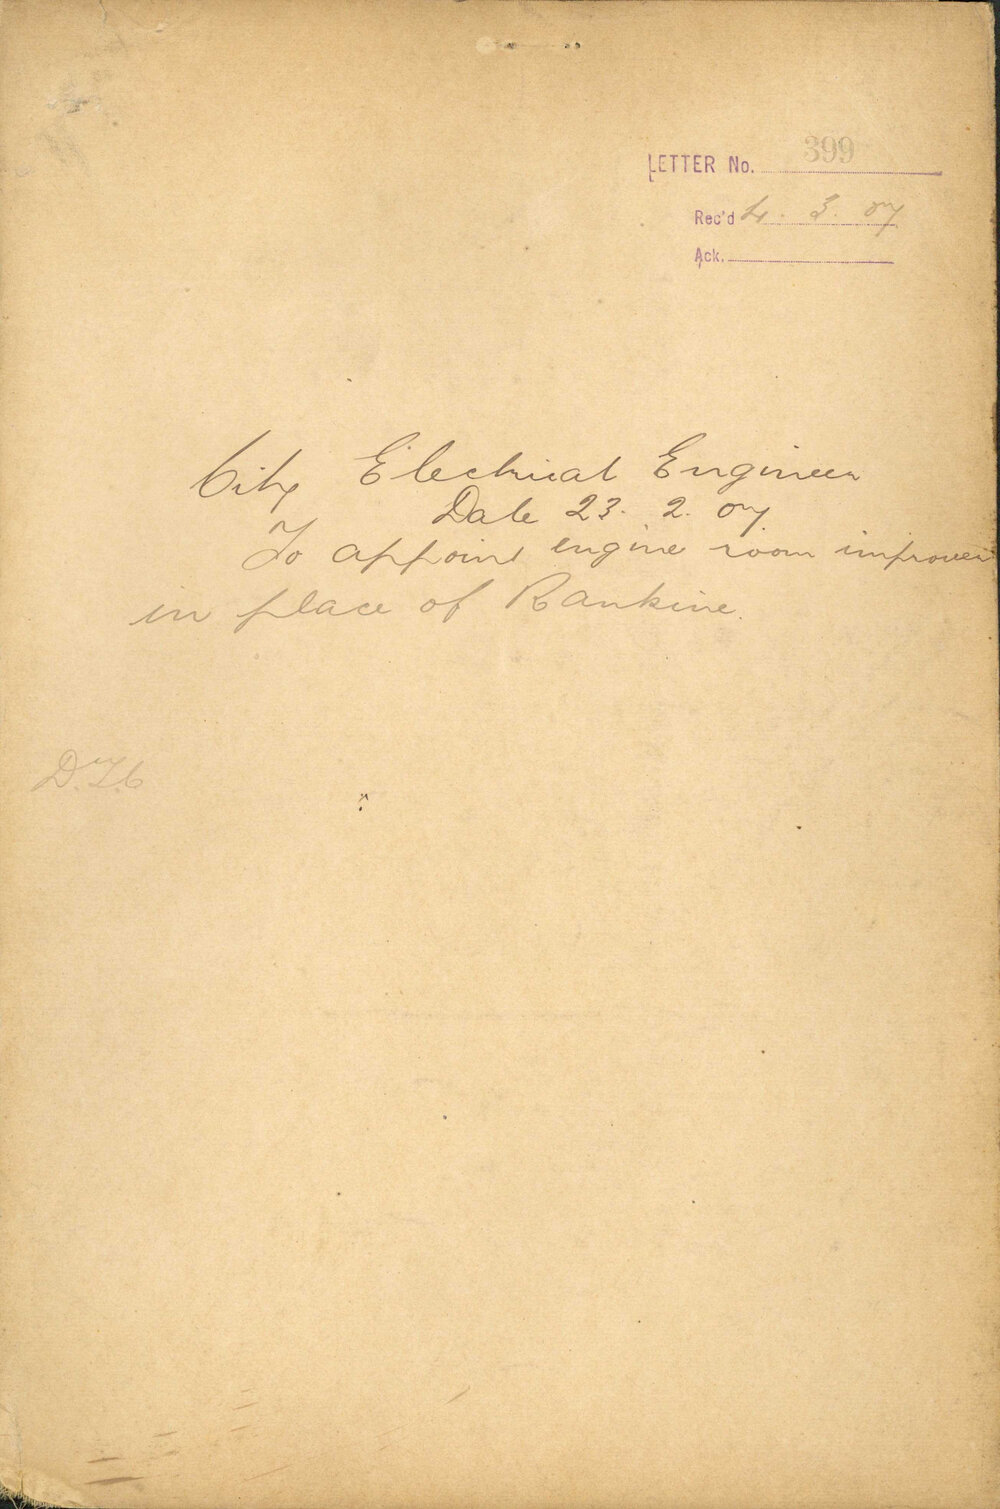 LETTER No. 399
Rec'd 4. 3. 07
Ack.
City Electrical Engineer
Date 23. 2. 07
To appoint engine room improver
in place of Rankine.